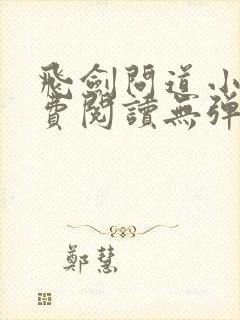 飛劍問道小
費閱讀無彈
鄭慧